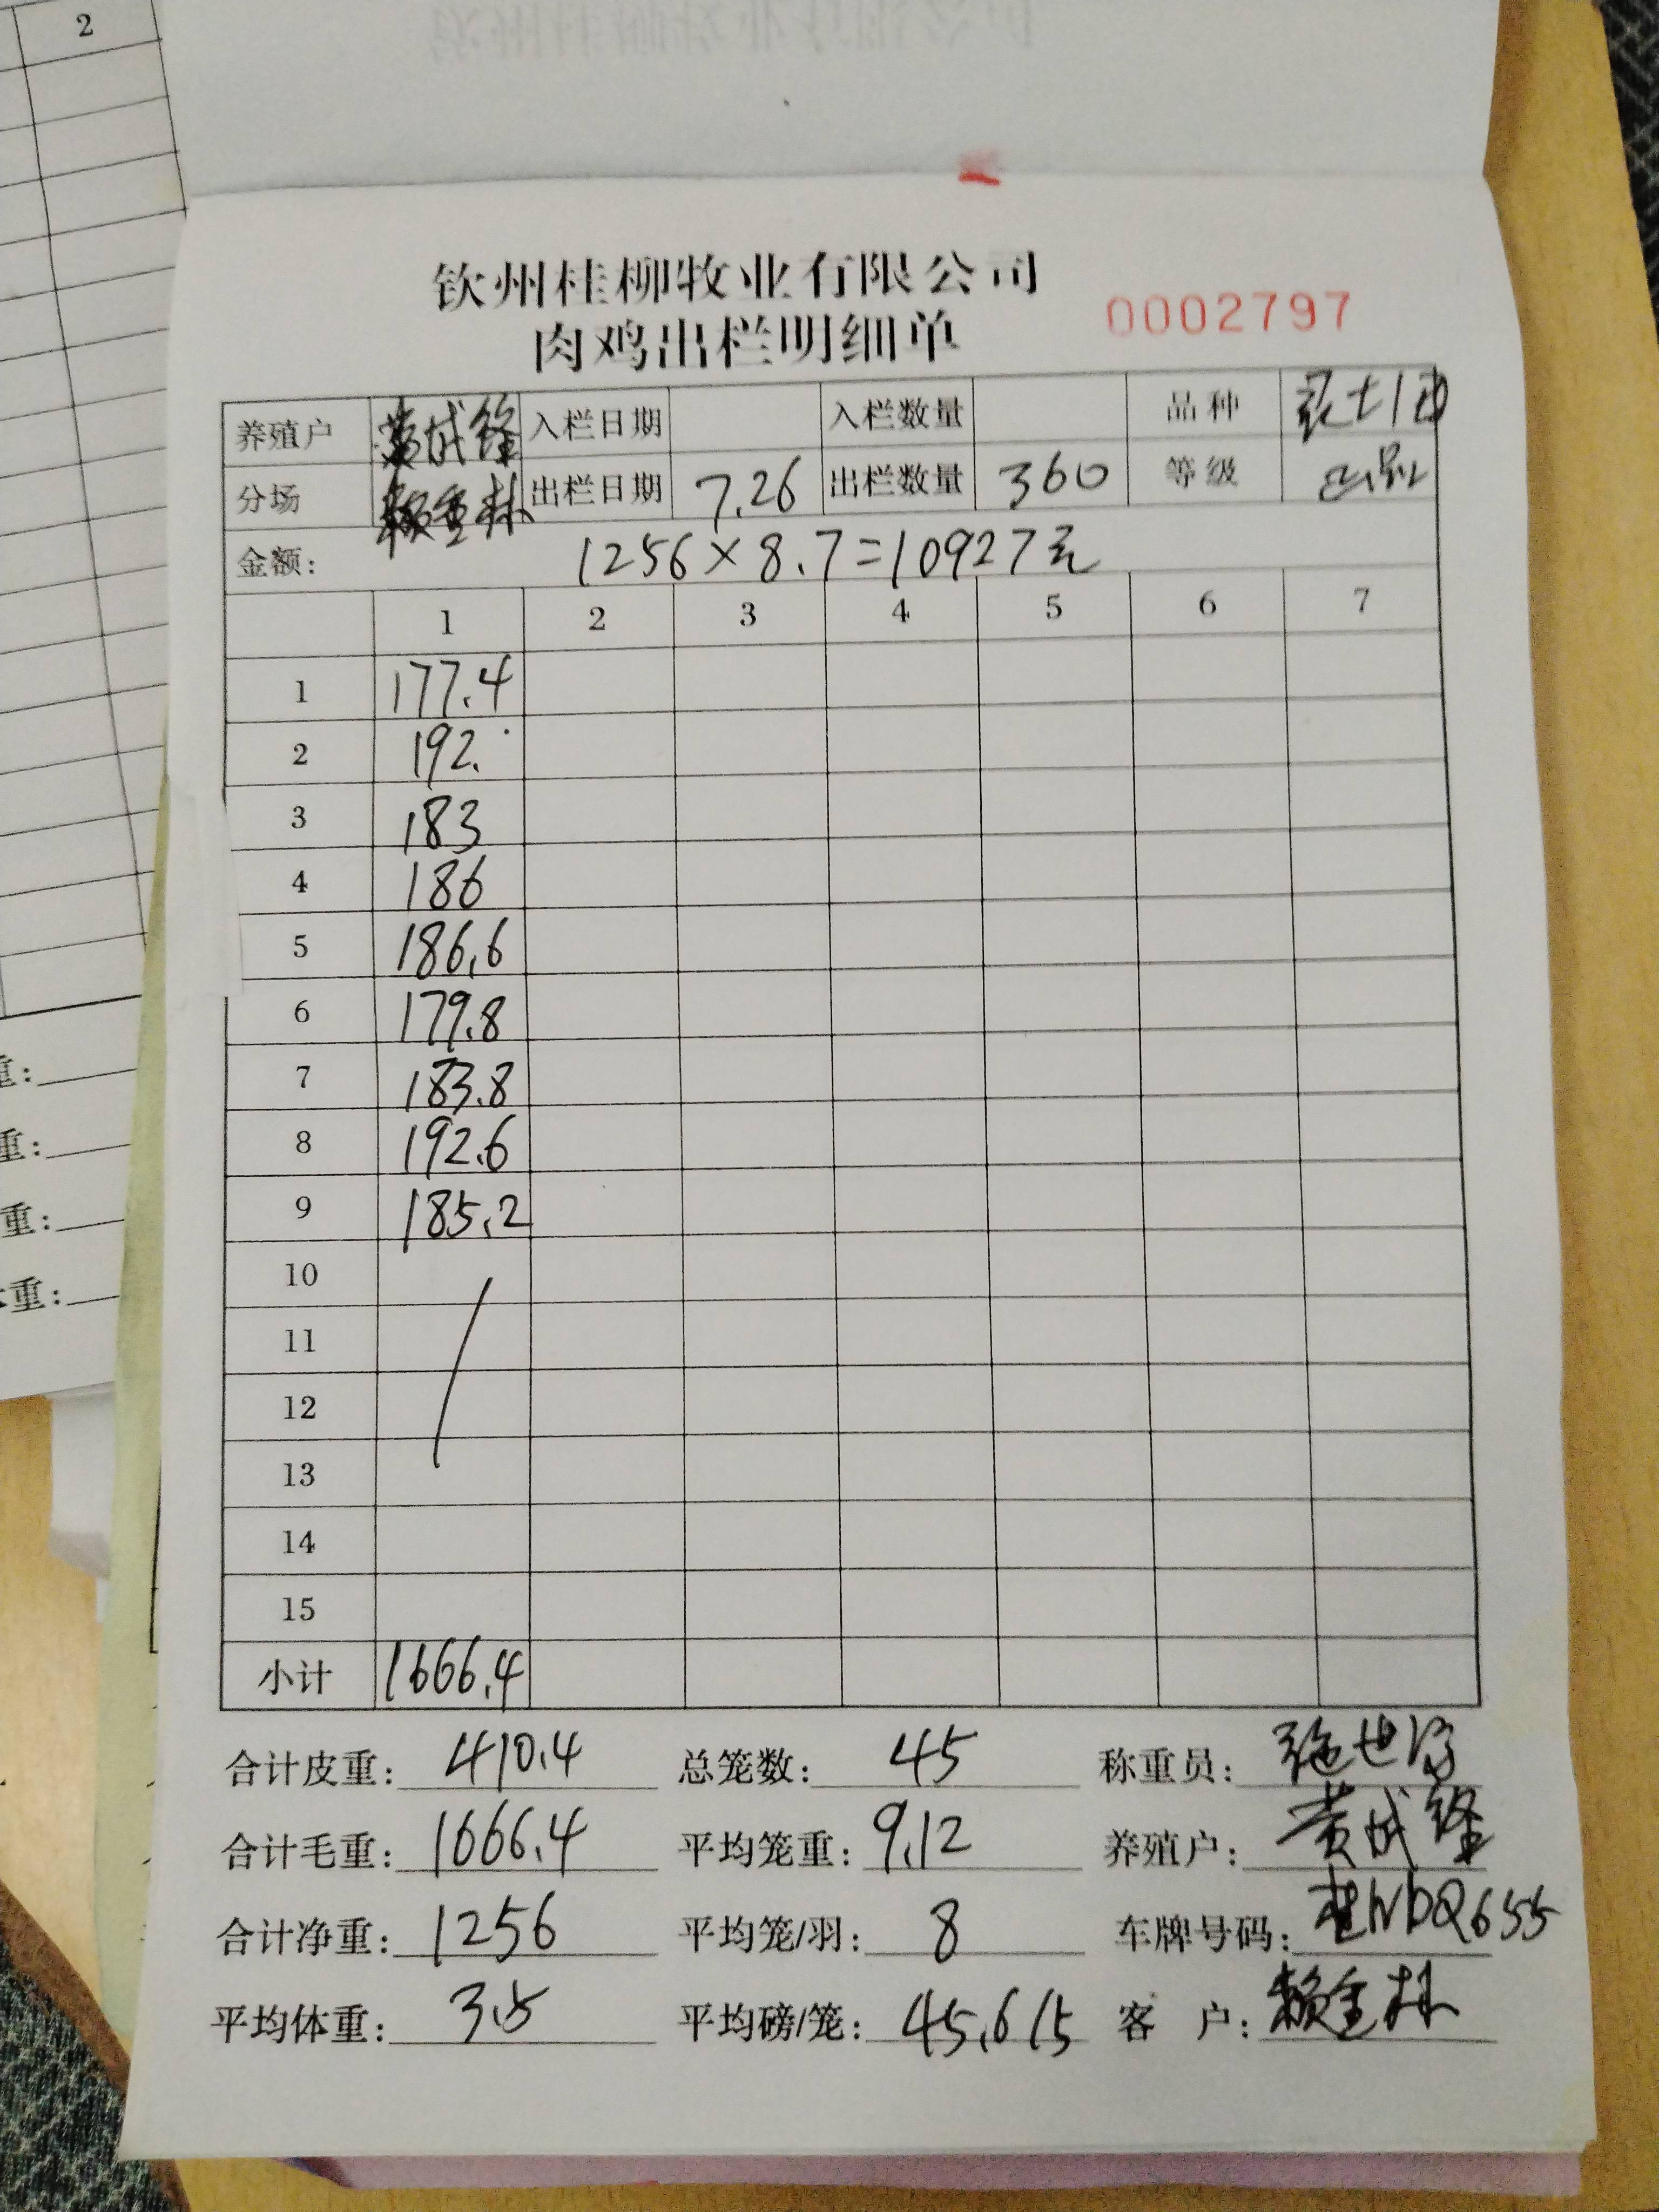 2
钦州桂柳牧业有限公司
肉鸡出栏明细单 0002797
养殖户 黄成锋 入栏日期 入栏数量 品种
分场 赖金林 出栏日期 7.26 出栏数量 360 等级
金额: 1256×8.7=10927元
1 2 3 4 5 6 7
1 177.4
2 192.
3 183
4 186
5 186.6
6 179.8
7 183.8
8 192.6
9 185.2
10
11
12
13
14
15
小计 1666.4
合计皮重: 410.4 总笼数: 45 称重员:
合计毛重: 1666.4 平均笼重: 9.12 养殖户: 黄成锋
合计净重: 1256 平均笼/羽: 8 车牌号码: 桂NDQ655
平均体重: 3.5 平均磅/笼: 45.6/5 客 户: 赖金林
重:
重:
重:
重: